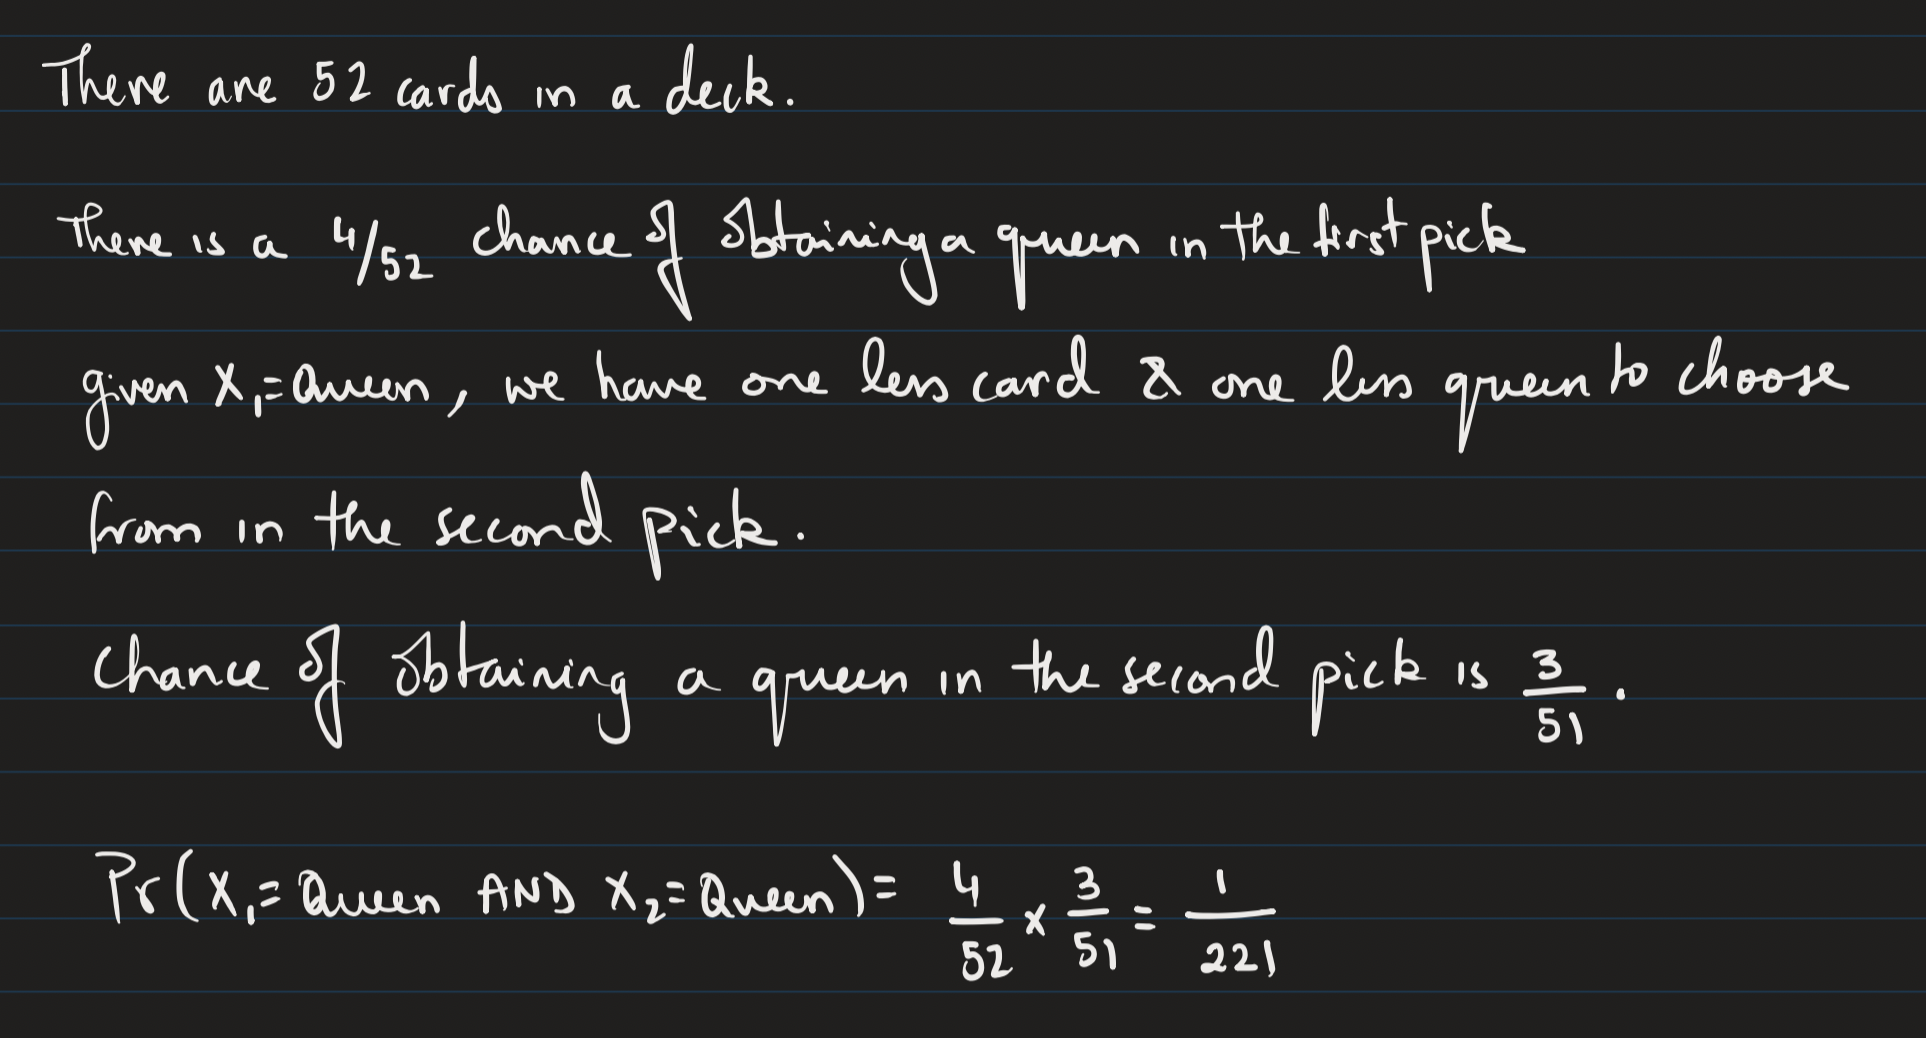 There are 52 cards in a deck.
There is a 4/52 chance of obtaining a queen in the first pick
given X₁=Queen, we have one less card & one less queen to choose
from in the second pick.
Chance of obtaining a queen in the second pick is 3/51.
Pr(X₁=Queen AND X₂=Queen)= 4/52 × 3/51 = 1/221